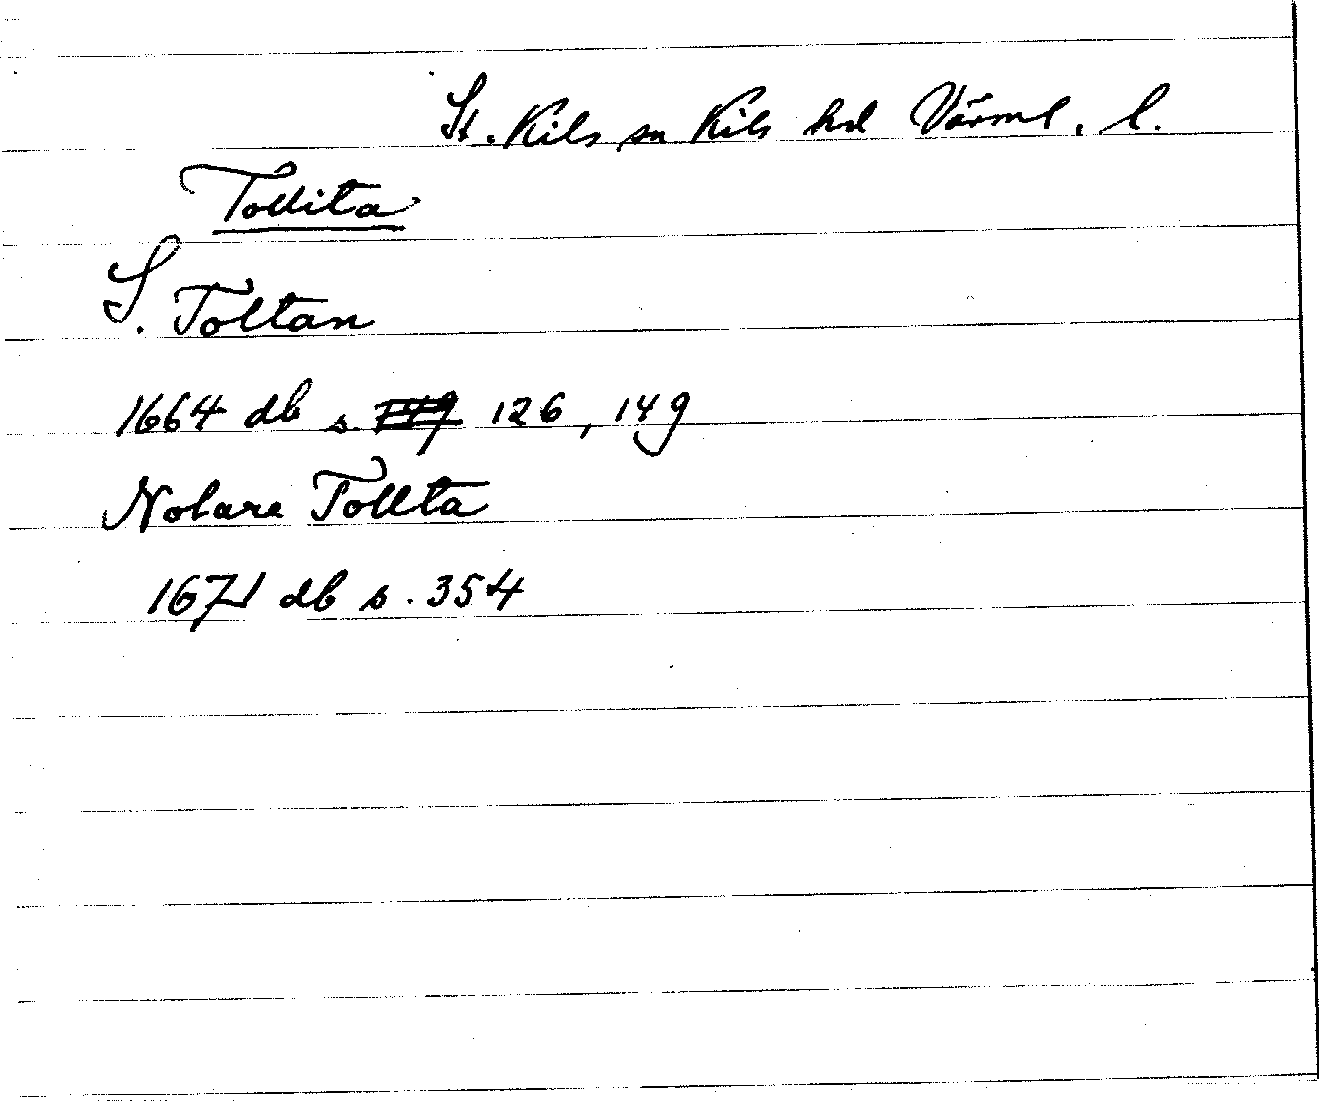 St. Kils sn Kils hd Värml. l.
Tollita
S. Toltan
1664 db s. 126, 149
Nolare Tollta
1671 db s. 354